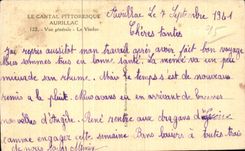 LE CANTAL PITTORESQUE
AURILLAC
122. - Vue générale - Le Viaduc
Aurillac Le 7 Septembre 1941
Chères tantes
J'ai repris aussitôt mon travail après avoir fait bon voyage
Nous sommes tous en bonne santé. La mémé va un peu
mieux de son rhume. Mais le temps est de nouveau
remis à la pluie. Nous avons eu en arrivant de bonnes
nouvelles d'Angèle. René rentre aux dragées
comme engagé cette semaine. Bons baisers à toutes trois
de nous